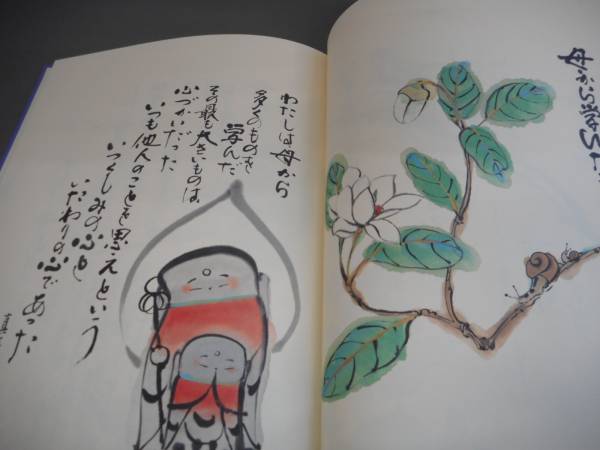 母から学んだ
わたしは母から
多くのものを
学んだ
その最も大きいものは
心づかいだった
いつも他人のことを思えという
いつくしみの心と
いたわりの心であった